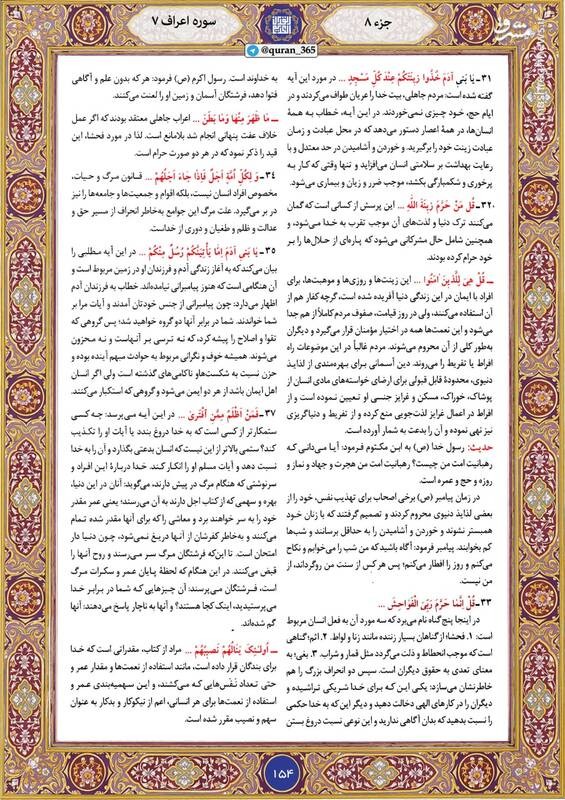 جزء ۸
سوره اعراف ۷
@quran_365
مشرق
۳۱- یَا بَنِی آدَمَ خُذُوا زِینَتَکُمْ عِنْدَ کُلِّ مَسْجِدٍ ... در مورد این آیه
گفته شده است: مردم جاهلی، بیت خدا را عریان طواف می‌کردند و در
ایام حج، خود چیزی نمی‌خوردند. در این آیه، خطاب به همهٔ
انسان‌ها، در همهٔ اعصار دستور می‌دهد که در محل عبادت و زمان
عبادت زینت خود را برگیرید. و خوردن و آشامیدن در حد معتدل و با
رعایت بهداشت بر سلامتی انسان می‌افزاید و تنها وقتی که کار به
پرخوری و شکمبارگی بکشد، موجب ضرر و زیان و بیماری می‌شود.
۳۲- قُل مَنْ حَرَّمَ زِینَةَ اللهِ ... این پرسش از کسانی است که گمان
می‌کنند ترک دنیا و لذت‌های آن موجب تقرب به خدا می‌شود، و
همچنین شامل حال مشرکانی می‌شود که پاره‌ای از حلال‌ها را بر
خود حرام کرده بودند.
ــ قُلْ هِیَ لِلَّذِینَ آمَنُوا ... این زینت‌ها و روزی‌ها و موهبت‌ها، برای
افراد با ایمان در این زندگی دنیا آفریده شده است، گرچه کفار هم از
آن استفاده می‌کنند، ولی در روز قیامت، صفوف مردم کاملاً از هم جدا
می‌شود و این نعمت‌ها همه در اختیار مؤمنان قرار می‌گیرد و دیگران
به‌طور کلی از آن محروم می‌شوند. مردم غالباً در این موضوعات راه
افراط یا تفریط را می‌روند. دین آسمانی برای بهره‌مندی از لذایذ
دنیوی، محدودهٔ قابل قبولی برای ارضای خواسته‌های مادی انسان از
پوشاک، خوراک، مسکن و غرایز جنسی او تعیین نموده است و از
افراط در اعمال غرایز لذت‌جویی منع کرده و از تفریط و دنیاگریزی
نیز نهی نموده و آن را بدعت به شمار آورده است.
حدیث: رسول خدا (ص) به ابن مکتوم فرمود: آیا می‌دانی که
رهبانیت امت من چیست؟ رهبانیت امت من هجرت و جهاد و نماز و
روزه و حج و عمره است.
در زمان پیامبر (ص) برخی اصحاب برای تهذیب نفس، خود را از
بعضی لذایذ دنیوی محروم کردند و تصمیم گرفتند که با زنان خود
همبستر نشوند و خوردن و آشامیدن را به حداقل برسانند و شب‌ها
کم بخوابند. پیامبر فرمود: آگاه باشید که من شب را می‌خوابم و نکاح
می‌کنم و روز را افطار می‌کنم؛ پس هر کس از سنت من روگرداند، از
من نیست.
۳۳- قُلْ اِنَّمَا حَرَّمَ رَبِّیَ الْفَوَاحِشَ ...
در اینجا پنج گناه نام می‌برد که سه مورد آن به فعل انسان مربوط
است: ۱. فحشا؛ از گناهان بسیار زننده مانند زنا و لواط. ۲. اثم؛ گناهی
است که موجب انحطاط و ذلت می‌گردد مثل قمار و شراب. ۳. بغی؛ به
معنای تعدی به حقوق دیگران است. سپس دو انحراف بزرگ را هم
خاطرنشان می‌سازد: یکی این که برای خدا شریکی تراشیده و
دیگران را در کارهای الهی دخالت دهید و دیگر این که به خدا حکمی
را نسبت بدهید که بدان آگاهی ندارید و این نوعی نسبت دروغ بستن
به خداوند است. رسول اکرم (ص) فرمود: هر که بدون علم و آگاهی
فتوا دهد، فرشتگان آسمان و زمین او را لعنت می‌کنند.
ــ مَا ظَهَرَ مِنْهَا وَمَا بَطَنَ ... اعراب جاهلی معتقد بودند که اگر عمل
خلاف عفت پنهانی انجام شد بلامانع است. لذا در مورد فحشا، این
قید را ذکر نمود که در هر دو صورت حرام است.
۳۴- وَ لِکُلِّ اُمَّةٍ اَجَلٌ فَاِذَا جَاءَ اَجَلُهُمْ ... قانون مرگ و حیات،
مخصوص افراد انسان نیست، بلکه اقوام و جمعیت‌ها و جامعه‌ها را نیز
در بر می‌گیرد. علت مرگ این جوامع به‌خاطر انحراف از مسیر حق و
عدالت و ظلم و طغیان و دوری از خداست.
۳۵- یَا بَنِی آدَمَ اِمَّا یَأْتِیَنَّکُمْ رُسُلٌ مِنْکُمْ ... در این آیه مطلبی را
بیان می‌کند که به آغاز زندگی آدم و فرزندان او در زمین مربوط است و
آن هنگامی است که هنوز پیامبرانی نیامده‌اند. خطاب به فرزندان آدم
اظهار می‌دارد: چون پیامبرانی از جنس خودتان آمدند و آیات مرا بر
شما خواندند. شما در برابر آنها دو گروه خواهید شد؛ پس گروهی که
تقوا و اصلاح را پیشه کرد، که نه ترسی بر آنهاست و نه محزون
می‌شوند. همیشه خوف و نگرانی مربوط به حوادث مبهم آینده بوده و
حزن نسبت به شکست‌ها و ناکامی‌های گذشته است ولی اگر انسان
اهل ایمان باشد از هر دو ایمن می‌شود و گروهی که استکبار می‌کنند.
۳۷- فَمَنْ اَظْلَمُ مِمَّنِ افْتَرَیٰ ... در این آیه می‌پرسد: چه کسی
ستمکارتر از کسی است که به خدا دروغ بندد یا آیات او را تکذیب
کند؟ ستمی بالاتر از این نیست که انسان بدعتی بگذارد و آن را به خدا
نسبت دهد و آیات مسلم او را انکار کند. خدا دربارهٔ این افراد و
سرنوشتی که هنگام مرگ در پیش دارند، می‌گوید: آنان در این دنیا،
بهره و سهمی که از کتاب اجل دارند به آن می‌رسند؛ یعنی عمر مقدر
خود را به سر خواهند برد و معاشی را که برای آنها مقدر شده تمام
می‌کنند و به‌خاطر کفرشان از آنها دریغ نمی‌شود، چون دنیا دار
امتحان است. تا این‌که فرشتگان مرگ سر می‌رسند و روح آنها را
قبض می‌کنند. در این هنگام که لحظهٔ پایان عمر و سکرات مرگ
است، فرشتگان می‌پرسند: آن چیزهایی که شما در برابر خدا
می‌پرستیدید، اینک کجا هستند؟ و آنها به ناچار پاسخ می‌دهند: آنها
گم شده‌اند.
ــ اُولٰئِکَ یَنَالُهُمْ نَصِیبُهُمْ ... مراد از کتاب، مقدراتی است که خدا
برای بندگان قرار داده است، مانند استفاده از نعمت‌ها و مقدار عمر و
حتی تعداد نَفَس‌هایی که می‌کشند، و این سهمیه‌بندی عمر و
استفاده از نعمت‌ها برای هر انسانی، اعم از نیکوکار و بدکار به عنوان
سهم و نصیب مقرر شده است.
۱۵۴